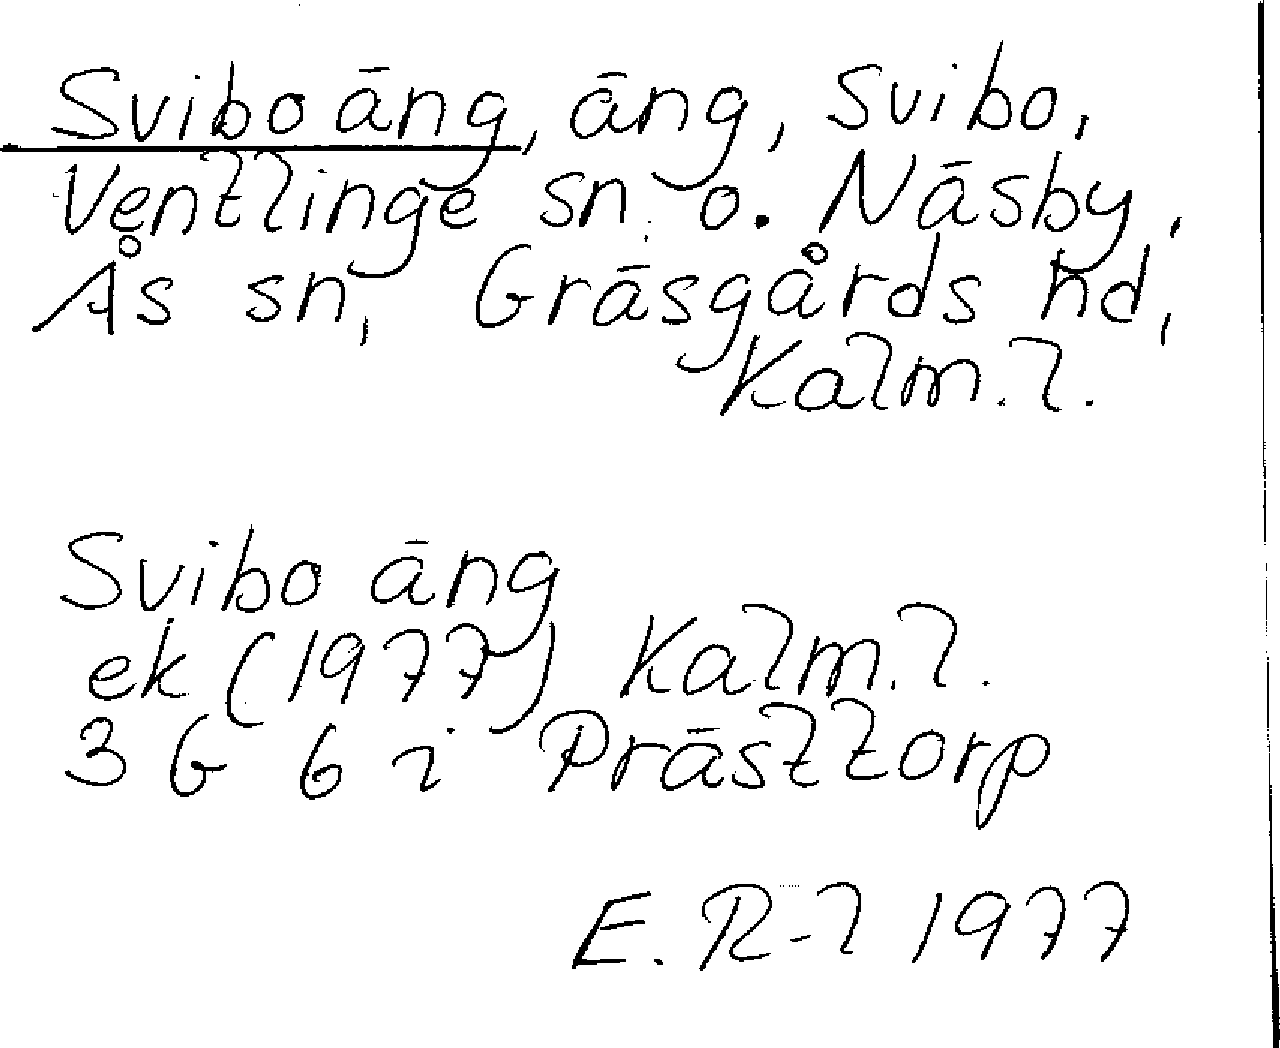 Svibo äng, äng, Svibo,
Ventlinge sn. o. Näsby,
Ås sn, Gräsgårds hd,
Kalm. l.
Svibo äng
ek (1977) Kalm. l.
3 G 6 i Prästtorp
E. R-l 1977